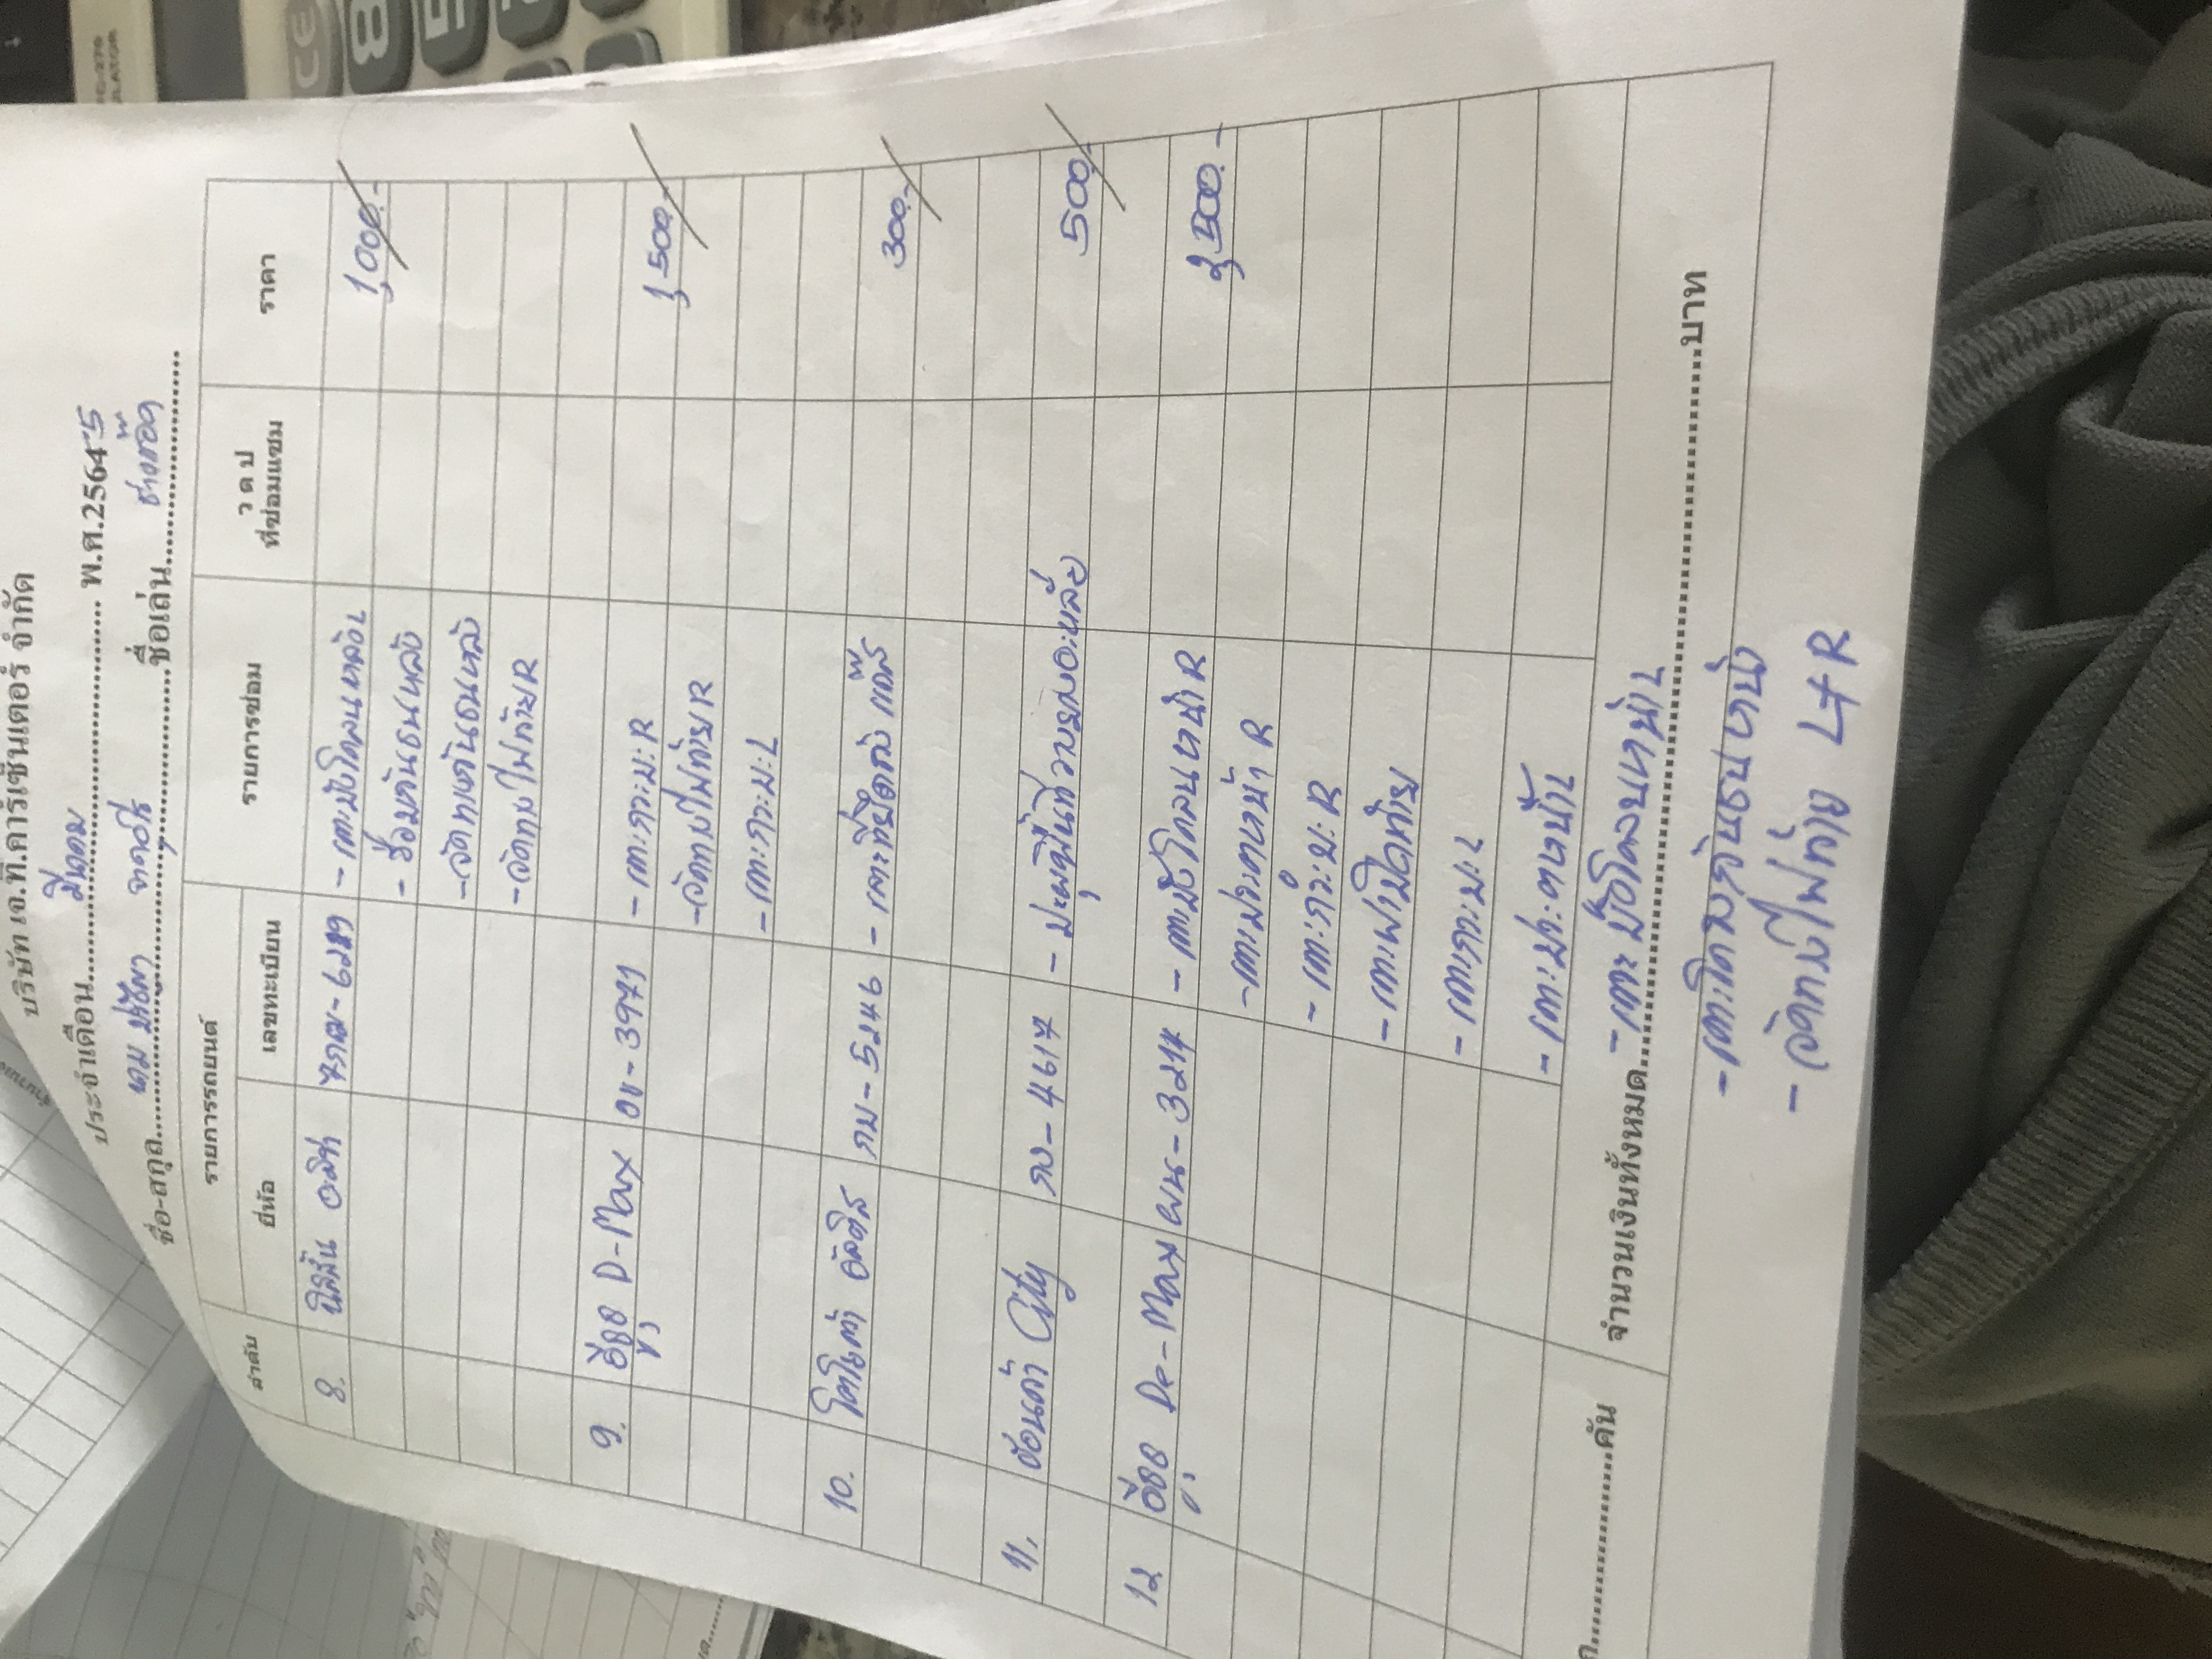 บริษัท เจ.ที.คาร์เซ็นเตอร์ จำกัด
ประจำเดือน......มีนาคม...... พ.ศ.2564 5
ชื่อ-สกุล...... ชื่อเล่น......ช่างก๊อต......
ลำดับ รายการรถยนต์ รายการซ่อม ว ด ป ที่ซ่อมแซม ราคา
ยี่ห้อ เลขทะเบียน
8. นิสสัน อลิซ - เคาะบังโคลนหลัง L 1,000.-
- ซ่อมกันชนหลัง
- จัดทรงคานชนหลัง
- จัดทรงไฟท้าย R
9. อีซูซุ D-Max บข-3971 - เคาะกระบะ R 1,500.-
- จัดทรงไฟท้าย R
- เคาะกระบะ L
10. โตโยต้า อัลติส กบ-5246 - เจาะที่ยึดถัง แก๊ส 300.-
11. ฮอนด้า City กง-4617 - ปะผุพื้นที่วางยางอะหลั่ย 500.-
12 อีซูซุ De-Max ผน-3217 - เคาะบังโคลนหน้า R 3,500.-
- เคาะประตูหน้า R
- เคาะกระบะ R
- เคาะฝาปิดท้าย
- เคาะกระบะ L
- เคาะประตูหน้า L
คัน จำนวนเงินทั้งหมด......บาท
- เคาะบังโคลนหน้า L
- เคาะคานกันชนหน้า
- จัดทรงไฟท้าย L+R